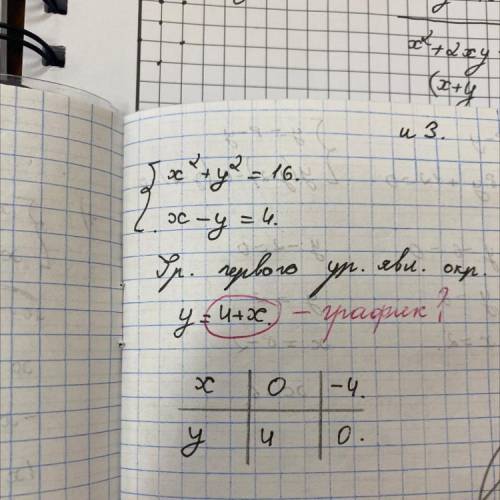 x² + 2xy
(x+y
и 3.
x² + y² = 16.
x - y = 4.
Гр. первого ур. явл. окр.
y = 4+x. - график?
x | 0 | -4.
y | 4 | 0.